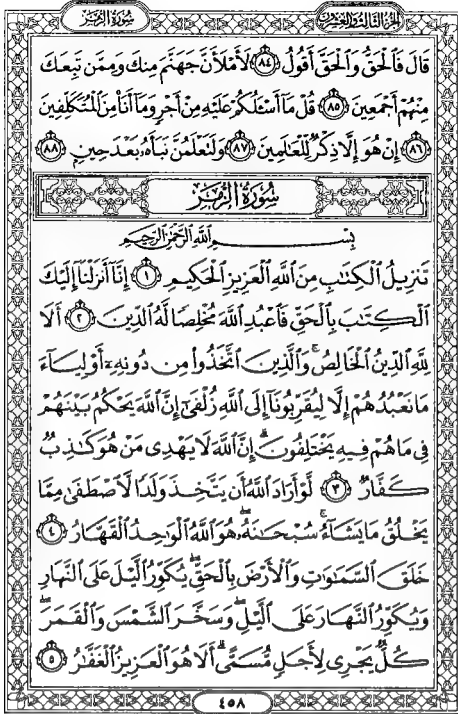 الجزء الثالث والعشرون
سورة الزمر
قَالَ فَٱلْحَقُّ وَٱلْحَقَّ أَقُولُ ٨٤ لَأَمْلَأَنَّ جَهَنَّمَ مِنكَ وَمِمَّن تَبِعَكَ
مِنْهُمْ أَجْمَعِينَ ٨٥ قُلْ مَآ أَسْـَٔلُكُمْ عَلَيْهِ مِنْ أَجْرٍ وَمَآ أَنَا۠ مِنَ ٱلْمُتَكَلِّفِينَ
٨٦ إِنْ هُوَ إِلَّا ذِكْرٌ لِّلْعَٰلَمِينَ ٨٧ وَلَتَعْلَمُنَّ نَبَأَهُۥ بَعْدَ حِينٍۭ ٨٨
سُورَةُ الزُّمَرِ
بِسْمِ ٱللَّهِ ٱلرَّحْمَٰنِ ٱلرَّحِيمِ
تَنزِيلُ ٱلْكِتَٰبِ مِنَ ٱللَّهِ ٱلْعَزِيزِ ٱلْحَكِيمِ ١ إِنَّآ أَنزَلْنَآ إِلَيْكَ
ٱلْكِتَٰبَ بِٱلْحَقِّ فَٱعْبُدِ ٱللَّهَ مُخْلِصًا لَّهُ ٱلدِّينَ ٢ أَلَا
لِلَّهِ ٱلدِّينُ ٱلْخَالِصُۚ وَٱلَّذِينَ ٱتَّخَذُوا۟ مِن دُونِهِۦٓ أَوْلِيَآءَ
مَا نَعْبُدُهُمْ إِلَّا لِيُقَرِّبُونَآ إِلَى ٱللَّهِ زُلْفَىٰٓ إِنَّ ٱللَّهَ يَحْكُمُ بَيْنَهُمْ
فِى مَا هُمْ فِيهِ يَخْتَلِفُونَۗ إِنَّ ٱللَّهَ لَا يَهْدِى مَنْ هُوَ كَٰذِبٌ
كَفَّارٌ ٣ لَّوْ أَرَادَ ٱللَّهُ أَن يَتَّخِذَ وَلَدًا لَّٱصْطَفَىٰ مِمَّا
يَخْلُقُ مَا يَشَآءُۚ سُبْحَٰنَهُۥۖ هُوَ ٱللَّهُ ٱلْوَٰحِدُ ٱلْقَهَّارُ ٤
خَلَقَ ٱلسَّمَٰوَٰتِ وَٱلْأَرْضَ بِٱلْحَقِّۖ يُكَوِّرُ ٱلَّيْلَ عَلَى ٱلنَّهَارِ
وَيُكَوِّرُ ٱلنَّهَارَ عَلَى ٱلَّيْلِۖ وَسَخَّرَ ٱلشَّمْسَ وَٱلْقَمَرَۖ
كُلٌّ يَجْرِى لِأَجَلٍ مُّسَمًّىۗ أَلَا هُوَ ٱلْعَزِيزُ ٱلْغَفَّٰرُ ٥
٤٥٨